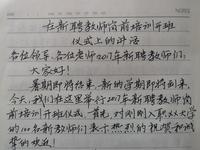 在新聘教师岗前培训开班
仪式上的讲话
各位领导、各位老师2017年新聘教师们:
大家好!
暑期即将结束,新的学期即将到来,
今天,我们在这里举行2017年新聘教师岗
前培训开班仪式,首先,对刚刚入职XX大学
的100名新教师们表示热烈的祝贺和诚挚
的欢迎!